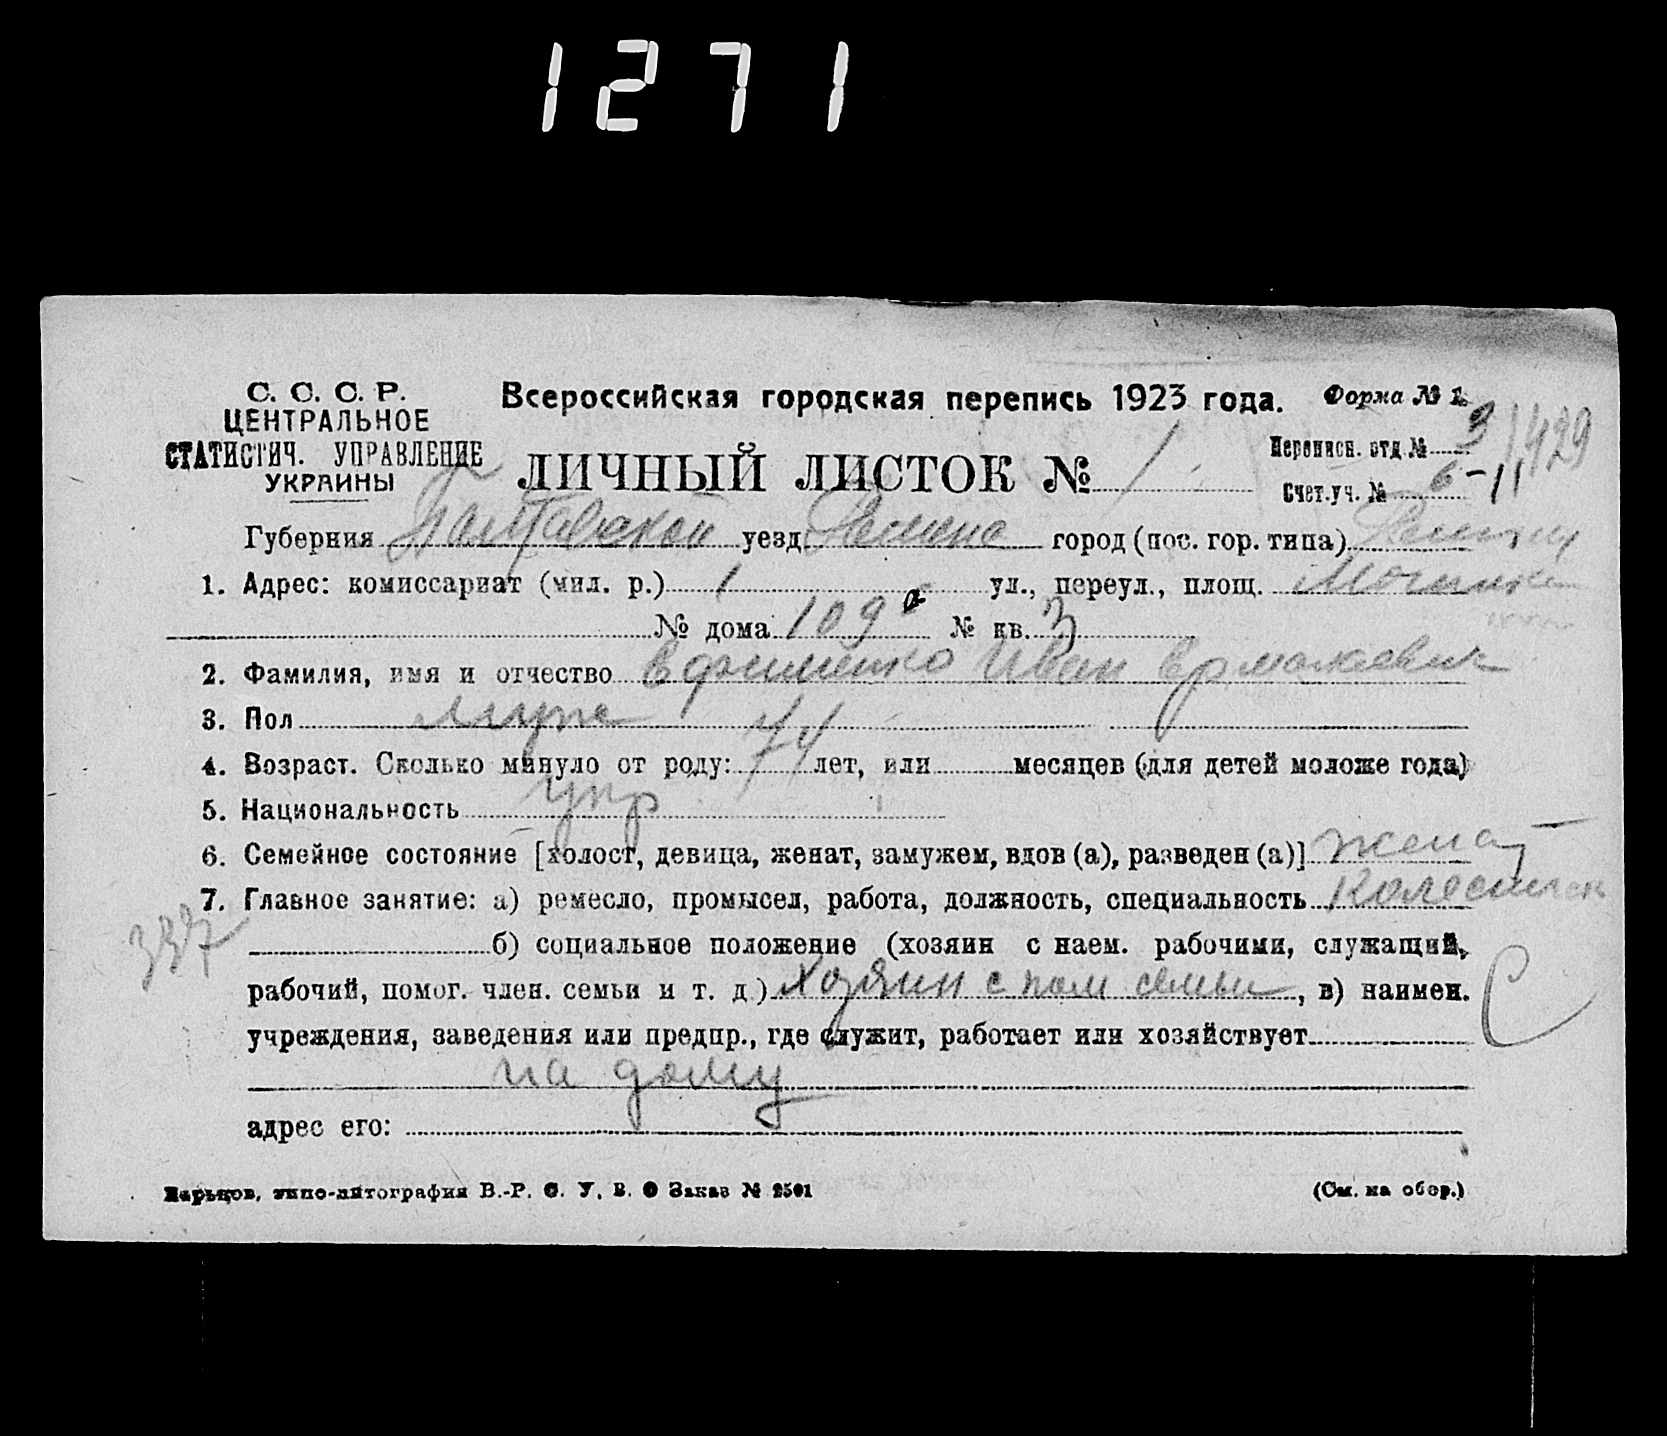 1271
С. С. С. Р.
ЦЕНТРАЛЬНОЕ
СТАТИСТИЧ. УПРАВЛЕНИЕ
УКРАИНЫ
Всероссийская городская перепись 1923 года.
Форма № 1.
ЛИЧНЫЙ ЛИСТОК № 1
Переписн. отд. № 3
Счет. уч. № 6-11
1429
Губерния Полтавской уезд город (пос. гор. типа)
1. Адрес: комиссариат (мил. р.) 1 ул., переул., площ.
№ дома 109 а № кв. 3
2. Фамилия, имя и отчество Ефименко Иван Ермолаевич
3. Пол муж
4. Возраст. Сколько минуло от роду: 74 лет, или месяцев (для детей моложе года)
5. Национальность укр
6. Семейное состояние [холост, девица, женат, замужем, вдов (а), разведен (а)] женат
7. Главное занятие: а) ремесло, промысел, работа, должность, специальность Колесник
337
б) социальное положение (хозяин с наем. рабочими, служащий,
рабочий, помог. член. семьи и т. д.) Хозяин с пом семьи, в) наимен.
С
учреждения, заведения или предпр., где служит, работает или хозяйствует
на дому
адрес его:
Харьков, типо-литография В.-Р. С. У. В. О Заказ № 2501
(См. на обор.)